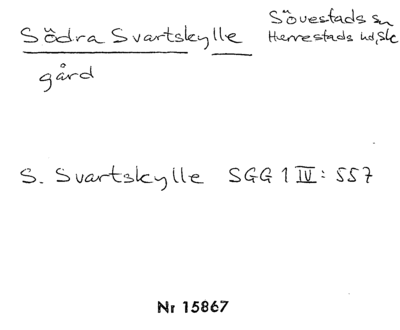 Södra Svartskylle
Sövestads sn
Herrestads hd, Sk
gård
S. Svartskylle SGG 1 IV: 557
Nr 15867